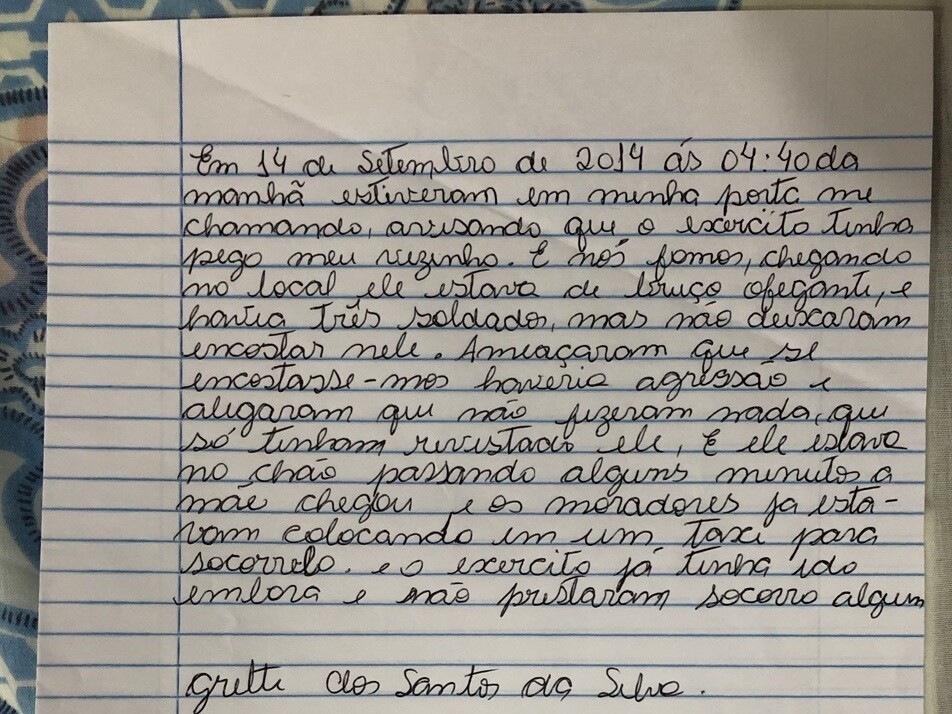 Em 14 de setembro de 2014 ás 04:40 da
manhã estiveram em minha porta me
chamando, avisando que o exercito tinha
pego meu vizinho. E nós fomos, chegando
no local ele estava de bruço ofegante, e
havia três soldado, mas não deixaram
encostar nele. Ameaçaram que se
encostasse-mos haveria agressão e
alegaram que não fizeram nada, que
só tinham revistado ele, E ele estava
no chão passando alguns minutos a
mãe chegou e os moradores ja esta-
vam colocando em um taxi para
socorrelo. e o exercito já tinha ido
embora e não prestaram socorro algum
dos Santos da Silva.